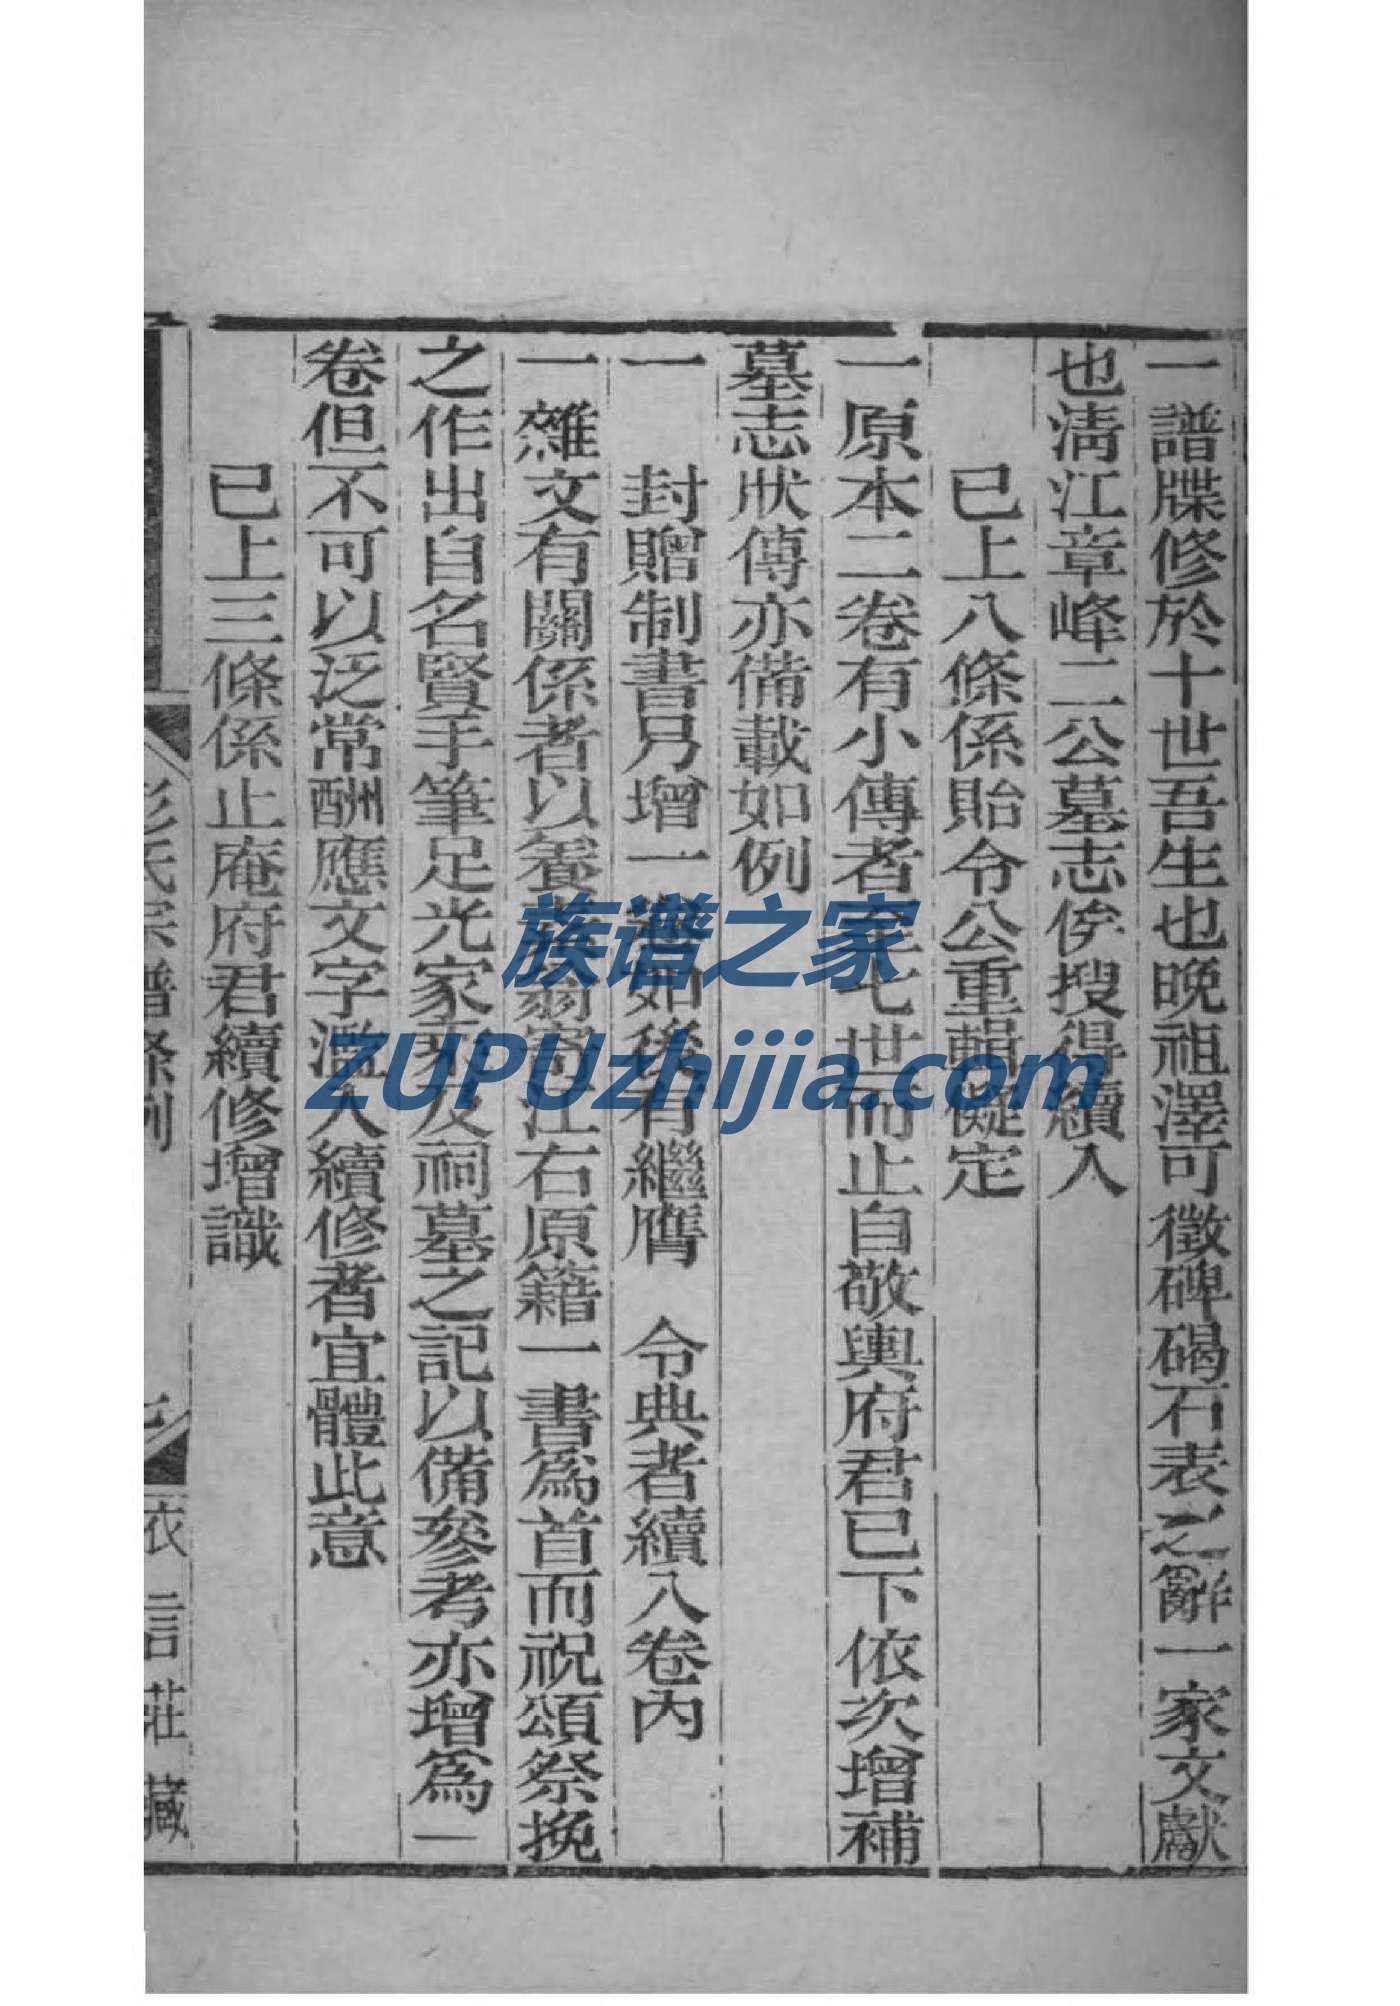 一譜牒修於十世吾生也晚祖澤可徵碑碣石表之辭一家文獻
也淸江章峰二公墓志俟搜得續入
已上八條係貽令公重輯儗定
一原本二卷有小傳者至七世而止自敬輿府君已下依次增補
墓志狀傳亦備載如例
一 封贈制書乃增一卷如後有繼膺 令典者續入卷內
一雜文有關係者以養翁寄江右原籍一書爲首而祝頌祭挽
之作出自名賢手筆足光家乘及祠墓之記以備參考亦增爲一
卷但不可以泛常酬應文字濫入續修者宜體此意
已上三條係止庵府君續修增識
彭氏宗譜條例
衣言莊藏
族谱之家
ZUPUzhijia.com